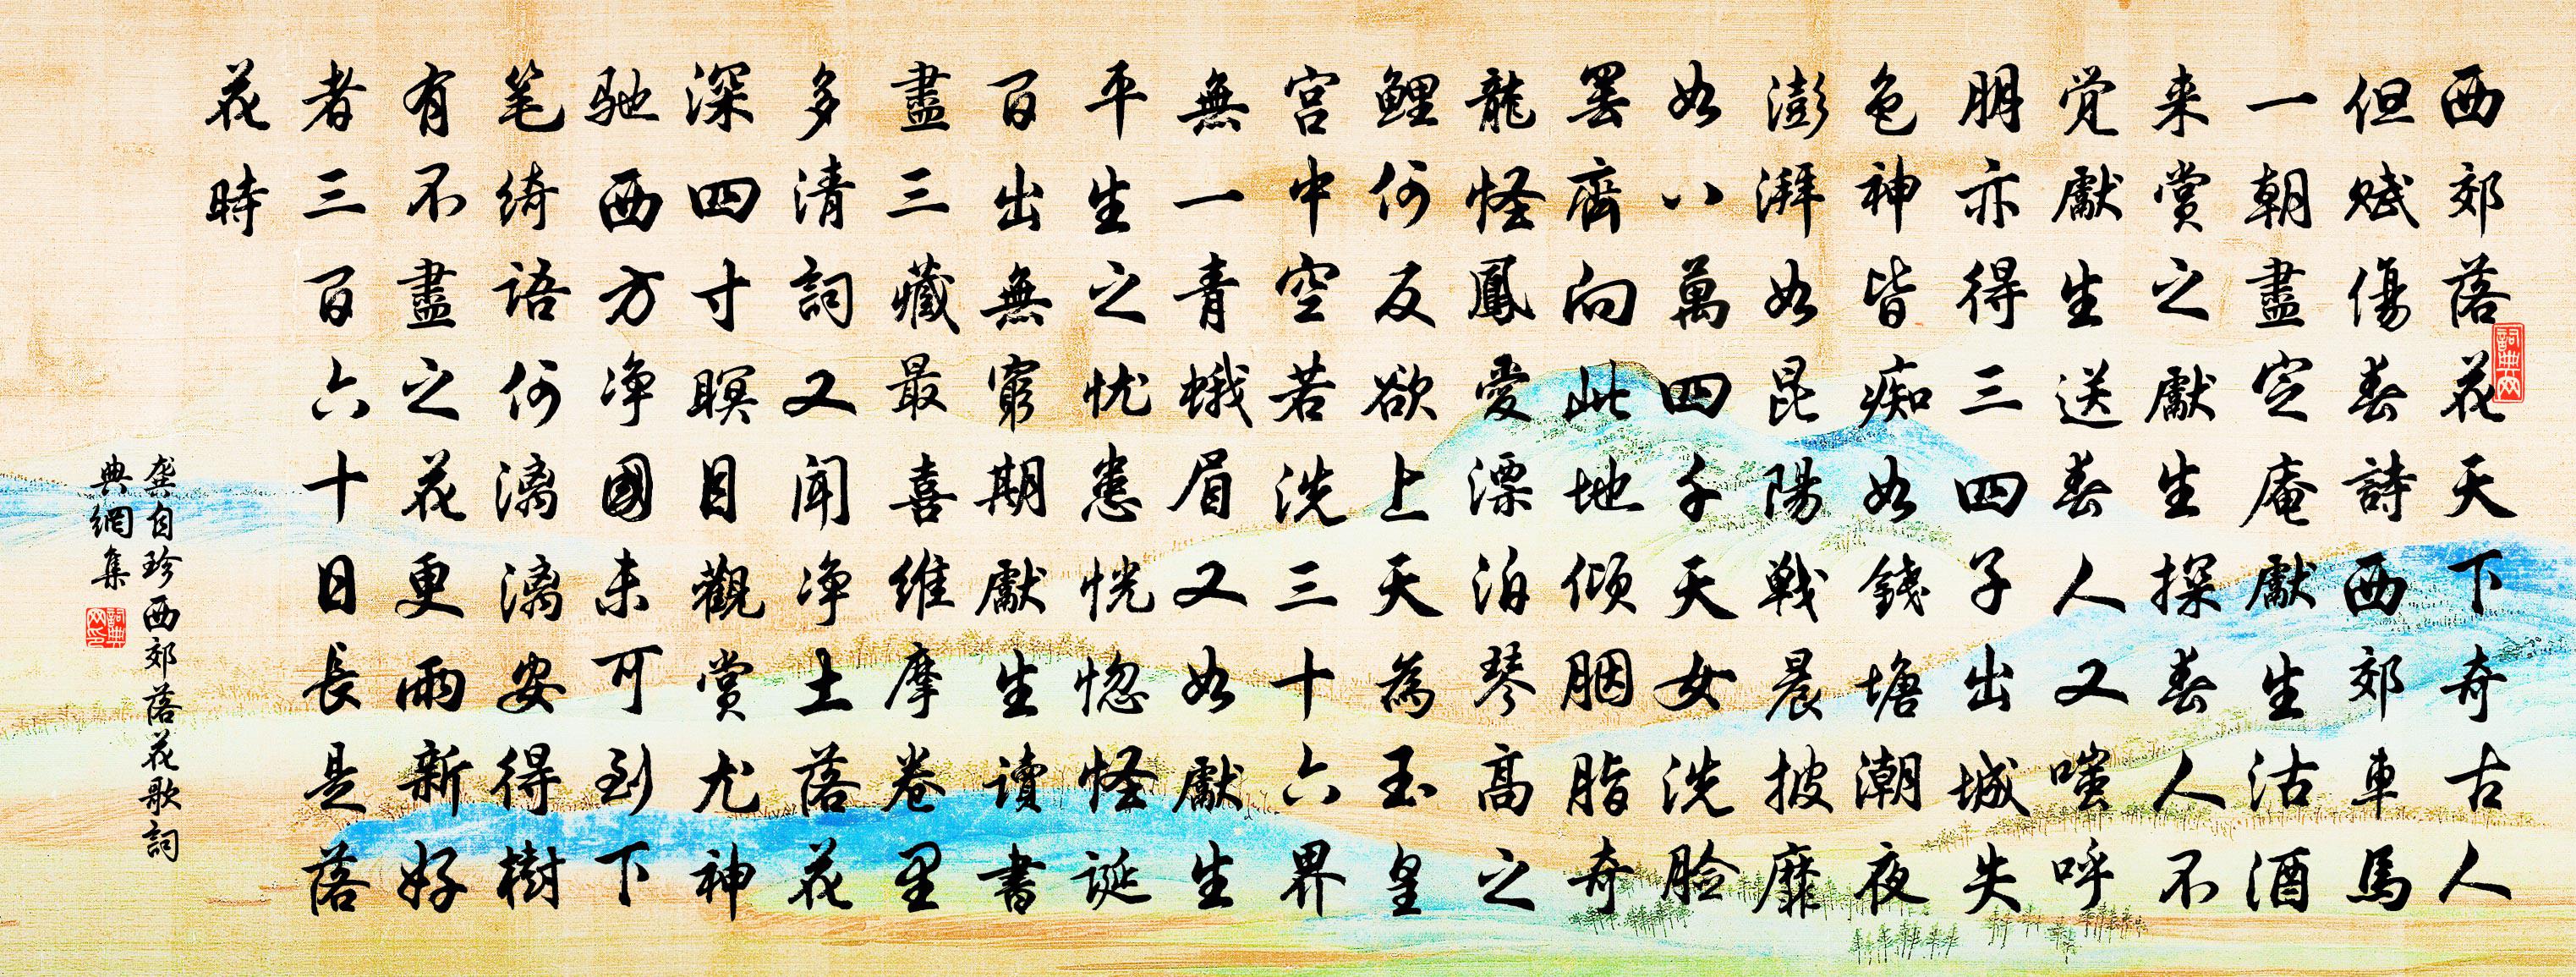 西郊落花天下奇古人
但赋傷春詩西郊車馬
一朝盡定庵獻生沽酒
来賞之獻生探春人不
觉獻生送春人又嗤呼
朋亦得三四子出城失
色神皆痴如錢塘潮夜
澎湃如昆陽戦晨披靡
如八萬四千天女洗脸
罢齊向此地倾胭脂奇
龍怪鳳愛漂泊琴高之
鯉何反欲上天為玉皇
宫中空若洗三十六界
無一青蛾眉又如獻生
平生之忧患恍惚怪誕
百出無窮期獻生讀書
盡三藏最喜維摩卷里
多清詞又闻净土落花
深四寸瞑目觀賞尤神
驰西方净國未可到下
笔绮语何漓漓安得樹
有不盡之花更雨新好
者三百六十日長是落
花時
龚自珍西郊落花歌詞
典網集
詞典网
詞典网印